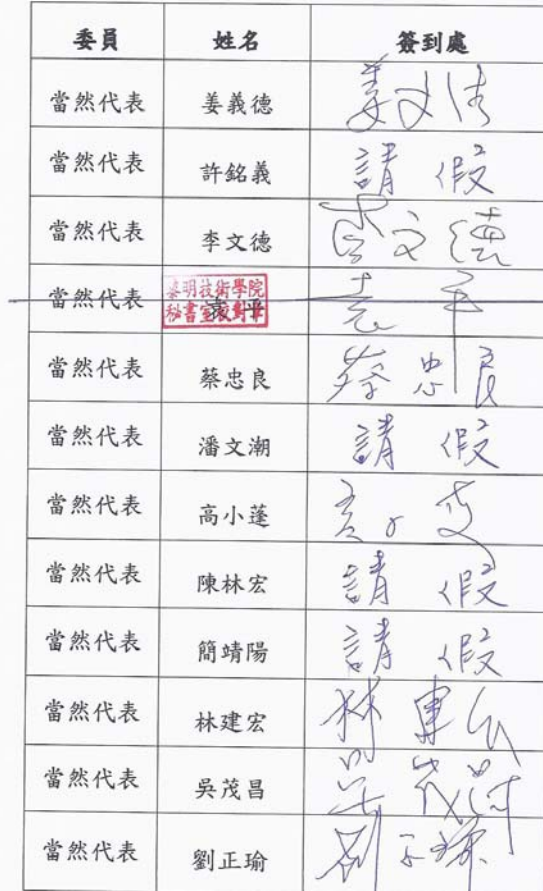 委員 姓名 簽到處
當然代表 姜義德
當然代表 許銘義 請假
當然代表 李文德 李文德
當然代表 袁平 袁平
黎明技術學院
秘書室校對章
當然代表 蔡忠良 蔡忠良
當然代表 潘文潮 請假
當然代表 高小蓬
當然代表 陳林宏 請假
當然代表 簡靖陽 請假
當然代表 林建宏 林建宏
當然代表 吳茂昌 吳茂昌
當然代表 劉正瑜